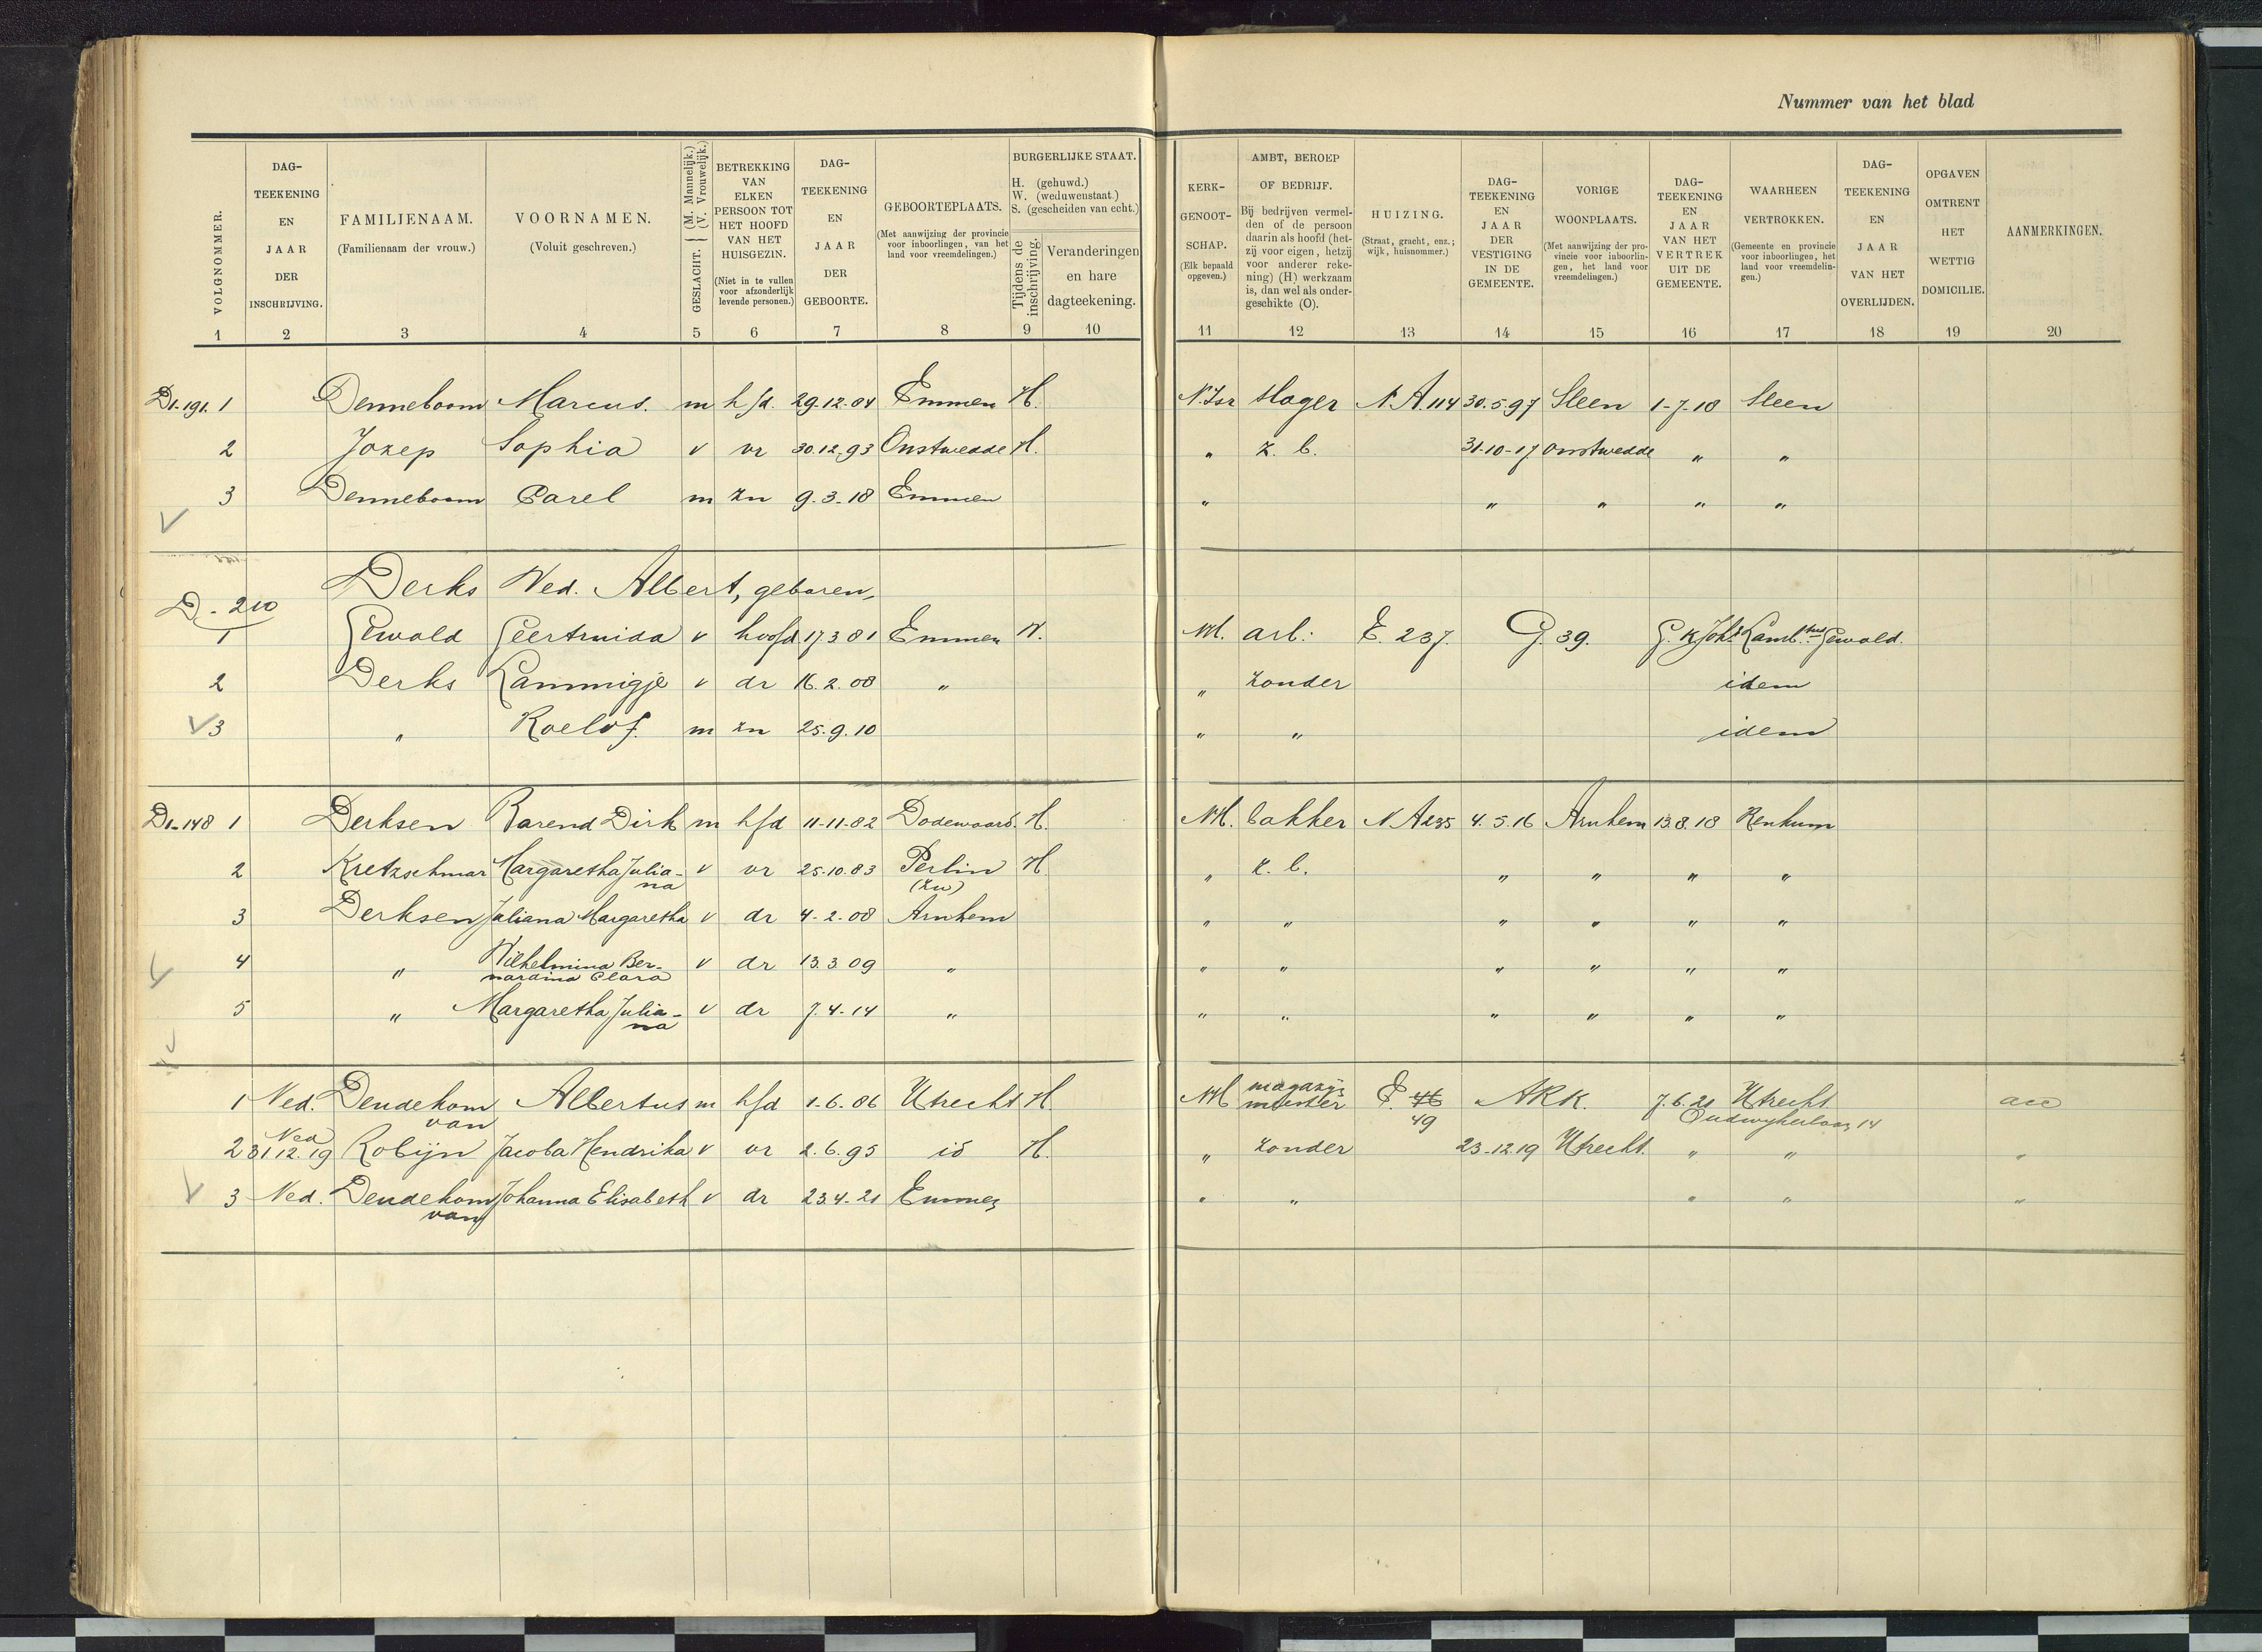 Nummer van het blad
VOLGNOMMER. DAG-TEEKENING EN JAAR DER INSCHRIJVING. FAMILIENAAM. (Familienaam der vrouw.) VOORNAMEN. (Voluit geschreven.) GESLACHT. (M. Mannelijk.) (V. Vrouwelijk.) BETREKKING VAN ELKEN PERSOON TOT HET HOOFD VAN HET HUISGEZIN. (Niet in te vullen voor afzonderlijk levende personen.) DAG-TEEKENING EN JAAR DER GEBOORTE. GEBOORTEPLAATS. (Met aanwijzing der provincie voor inboorlingen, van het land voor vreemdelingen.) BURGERLIJKE STAAT. H. (gehuwd.) W. (weduwenstaat.) S. (gescheiden van echt.) Tijdens de inschrijving. Veranderingen en hare dagteekening.
KERK-GENOOT-SCHAP. (Elk bepaald opgeven.) AMBT, BEROEP OF BEDRIJF. Bij bedrijven vermelden of de persoon daarin als hoofd (hetzij voor eigen, hetzij voor anderer rekening) (H) werkzaam is, dan wel als ondergeschikte (O). HUIZING. (Straat, gracht, enz.; wijk, huisnommer.) DAG-TEEKENING EN JAAR DER VESTIGING IN DE GEMEENTE. VORIGE WOONPLAATS. (Met aanwijzing der provincie voor inboorlingen, het land voor vreemdelingen.) DAG-TEEKENING EN JAAR VAN HET VERTREK UIT DE GEMEENTE. WAARHEEN VERTROKKEN. (Gemeente en provincie voor inboorlingen, het land voor vreemdelingen.) DAG-TEEKENING EN JAAR VAN HET OVERLIJDEN. OPGAVEN OMTRENT HET WETTIG DOMICILIE. AANMERKINGEN.
1 2 3 4 5 6 7 8 9 10 11 12 13 14 15 16 17 18 19 20
D1-191. 1 Denneboom Marcus. m hfd. 29.12.84 Emmen H. N.Isr slager N A.114 30.5.97 Sleen 1-7-18 Sleen
2 Jozep Sophia v vr 30.12.93 Onstwedde H. " z. b. 31-10-17 Onstwedde " "
3 Denneboom Carel m zn 9.3-18 Emmen " " " " "
Derks Wed. Albert, geboren,
D-210
1 Gewald Geertruida v hoofd 17.3.81 Emmen W. NH. arb: E. 237. G. 39. G. K Johs Lambtus Gewald.
2 Derks Lammigje v dr 16.2.08 " " zonder idem
3 " Roelof. m zn 25.9.10 " " idem
D1-148 1 Derksen Barend Dirk m hfd 11-11-82 Dodewaard. H. NH. bakker N A235 4.5.16 Arnhem 13.8.18 Renkum
2 Kretzschmar Margaretha Julia-na v vr 25.10.83 Berlin (Zw) H " z. b. " " " "
3 Derksen Juliana Margaretha v dr 4-2-08 Arnhem " " " " " "
4 " Wilhelmina Ber-nardina Clara v dr 13.3.09 " " " " " " "
5 " Margaretha Julia-na v dr 7.4-14 " " " " " " "
1 Ned. Dendekom van Albertus m hfd 1-6.86 Utrecht H. NH magazijnmeester E. 46 49 ARK. 7.6.21 Utrecht acc
14
2 Ned 31.12.19 Robijn Jacoba Hendrika v vr 2.6.95 id H. " zonder 23-12.19 Utrecht. " " "
3 Ned. Dendekom van Johanna Elisabeth v dr 23.4-21 Emmen " " " " "